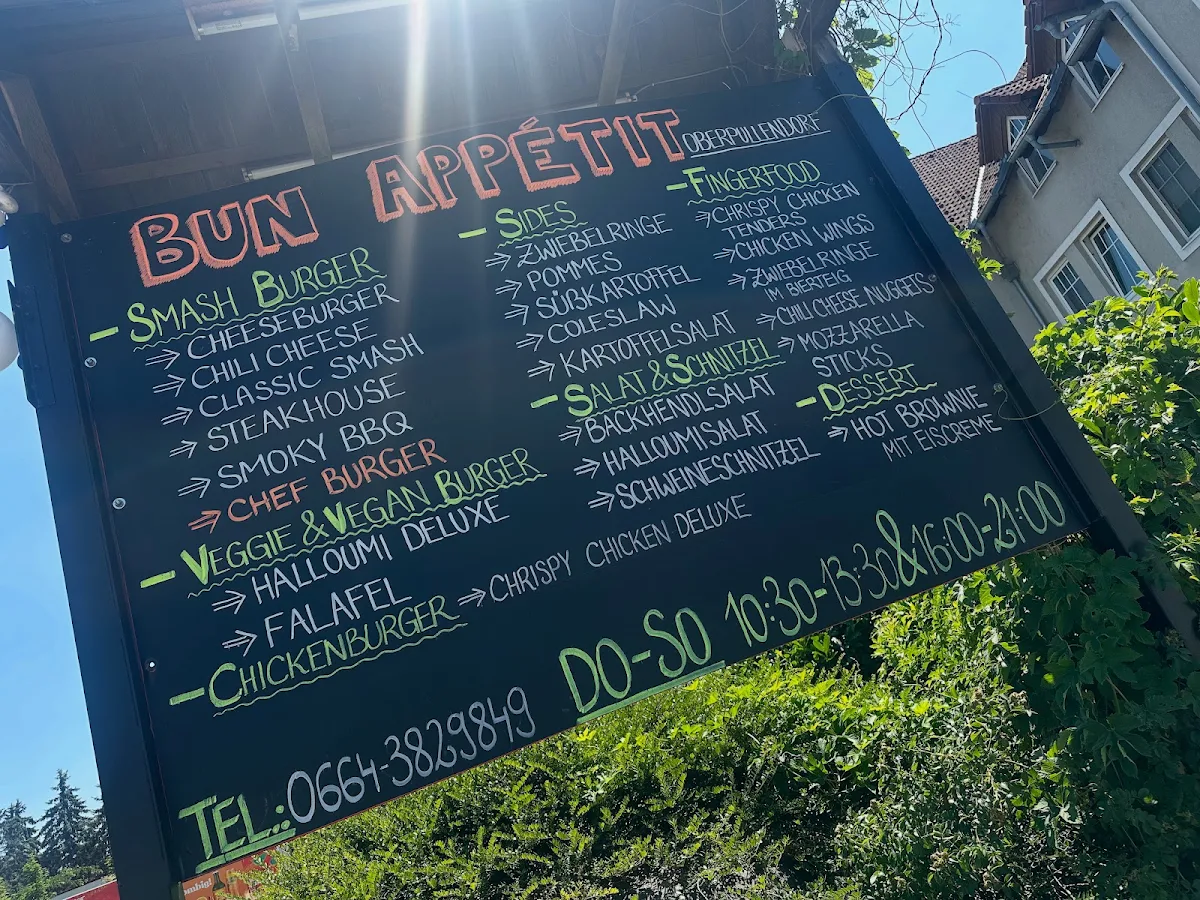 BUN APPÉTIT OBERPULLENDORF
- SMASH BURGER
⇒ CHEESEBURGER
⇒ CHILI CHEESE
⇒ CLASSIC SMASH
⇒ STEAKHOUSE
⇒ SMOKY BBQ
⇒ CHEF BURGER
- VEGGIE & VEGAN BURGER
⇒ HALLOUMI DELUXE
⇒ FALAFEL
- CHICKENBURGER
⇒ CHRISPY CHICKEN DELUXE
- SIDES
⇒ ZWIEBELRINGE
⇒ POMMES
⇒ SÜßKARTOFFEL
⇒ COLESLAW
⇒ KARTOFFELSALAT
- SALAT & SCHNITZEL
⇒ BACKHENDLSALAT
⇒ HALLOUMISALAT
⇒ SCHWEINESCHNITZEL
- FINGERFOOD
⇒ CHRISPY CHICKEN
TENDERS
⇒ CHICKEN WINGS
⇒ ZWIEBELRINGE
IM BIERTEIG
⇒ CHILI CHEESE NUGGETS
⇒ MOZZARELLA
STICKS
- DESSERT
⇒ HOT BROWNIE
MIT EISCREME
TEL.: 0664-3829849
DO-SO 10:30-13:30 & 16:00-21:00